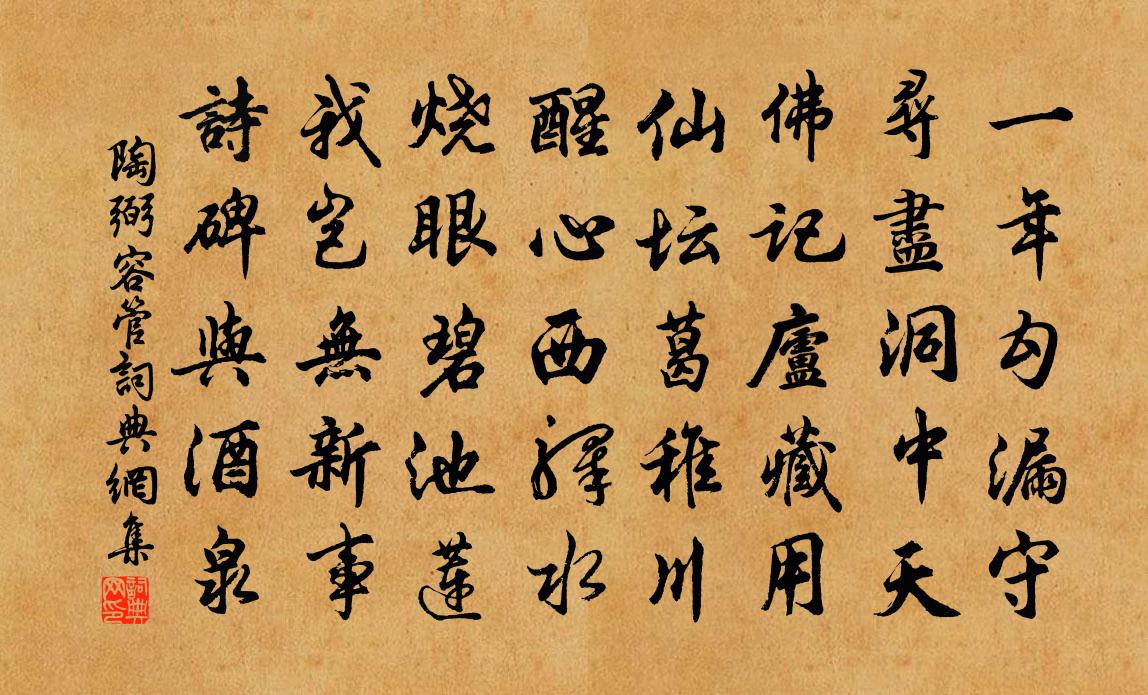 一年勾漏守
尋盡洞中天
佛记廬藏用
仙坛葛稚川
醒心西驛水
烧眼碧池蓮
我岂無新事
詩碑與酒泉
陶弼容管詞典網集
詞典网印